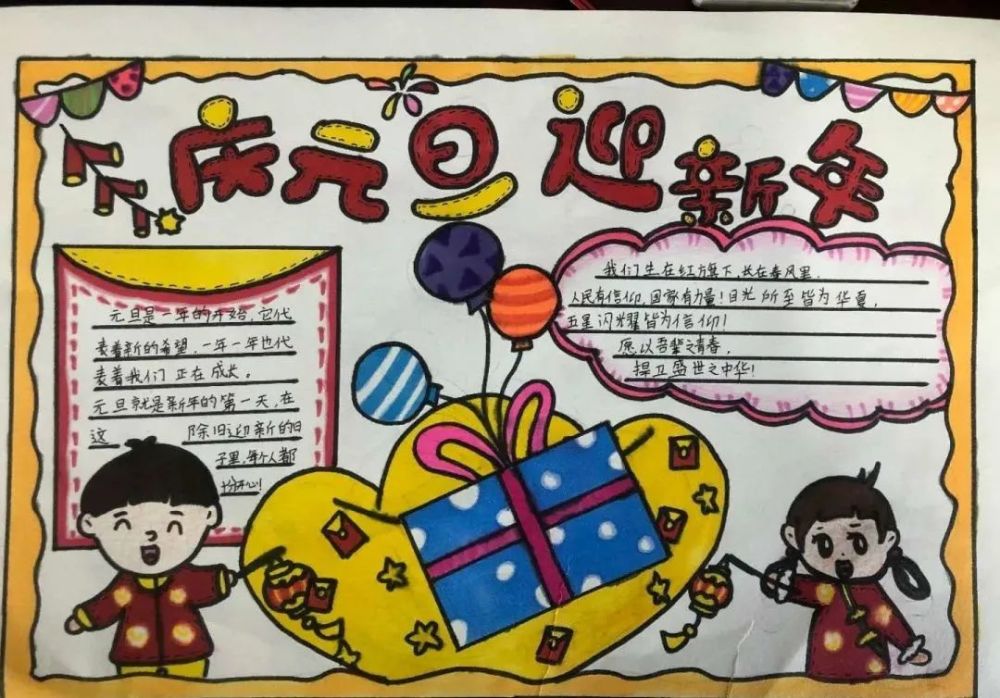 庆元旦迎新年
元旦是一年的开始,它代
表着新的希望,一年一年也代
表着我们正在成长。
元旦就是新年的第一天,在
这 除旧迎新的日
子里,每个人都
十分开心!
我们生在红旗下,长在春风里.
人民有信仰,国家有力量!目光所至皆为华夏,
五星闪耀皆为信仰!
愿以吾辈之青春,
捍卫盛世之中华!